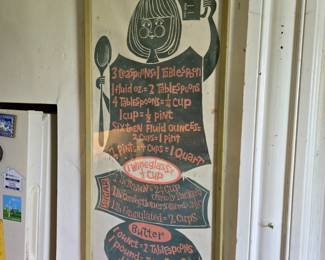 3 teaspoons 1 Tablespoon
1 fluid oz = 2 Tablespoons
4 Tablespoons = ¼ Cup
1 cup = ½ pint
Sixteen Fluid ounces =
2 Cups = 1 pint
2 Pints = 4 Cups = 1 Quart
1 Wineglass =
¼ Cup
Brown = 2¼ Cup
1 lb Granulated = 2 Cups
Butter
1 ounce = 2 Tablespoons
1 pound =